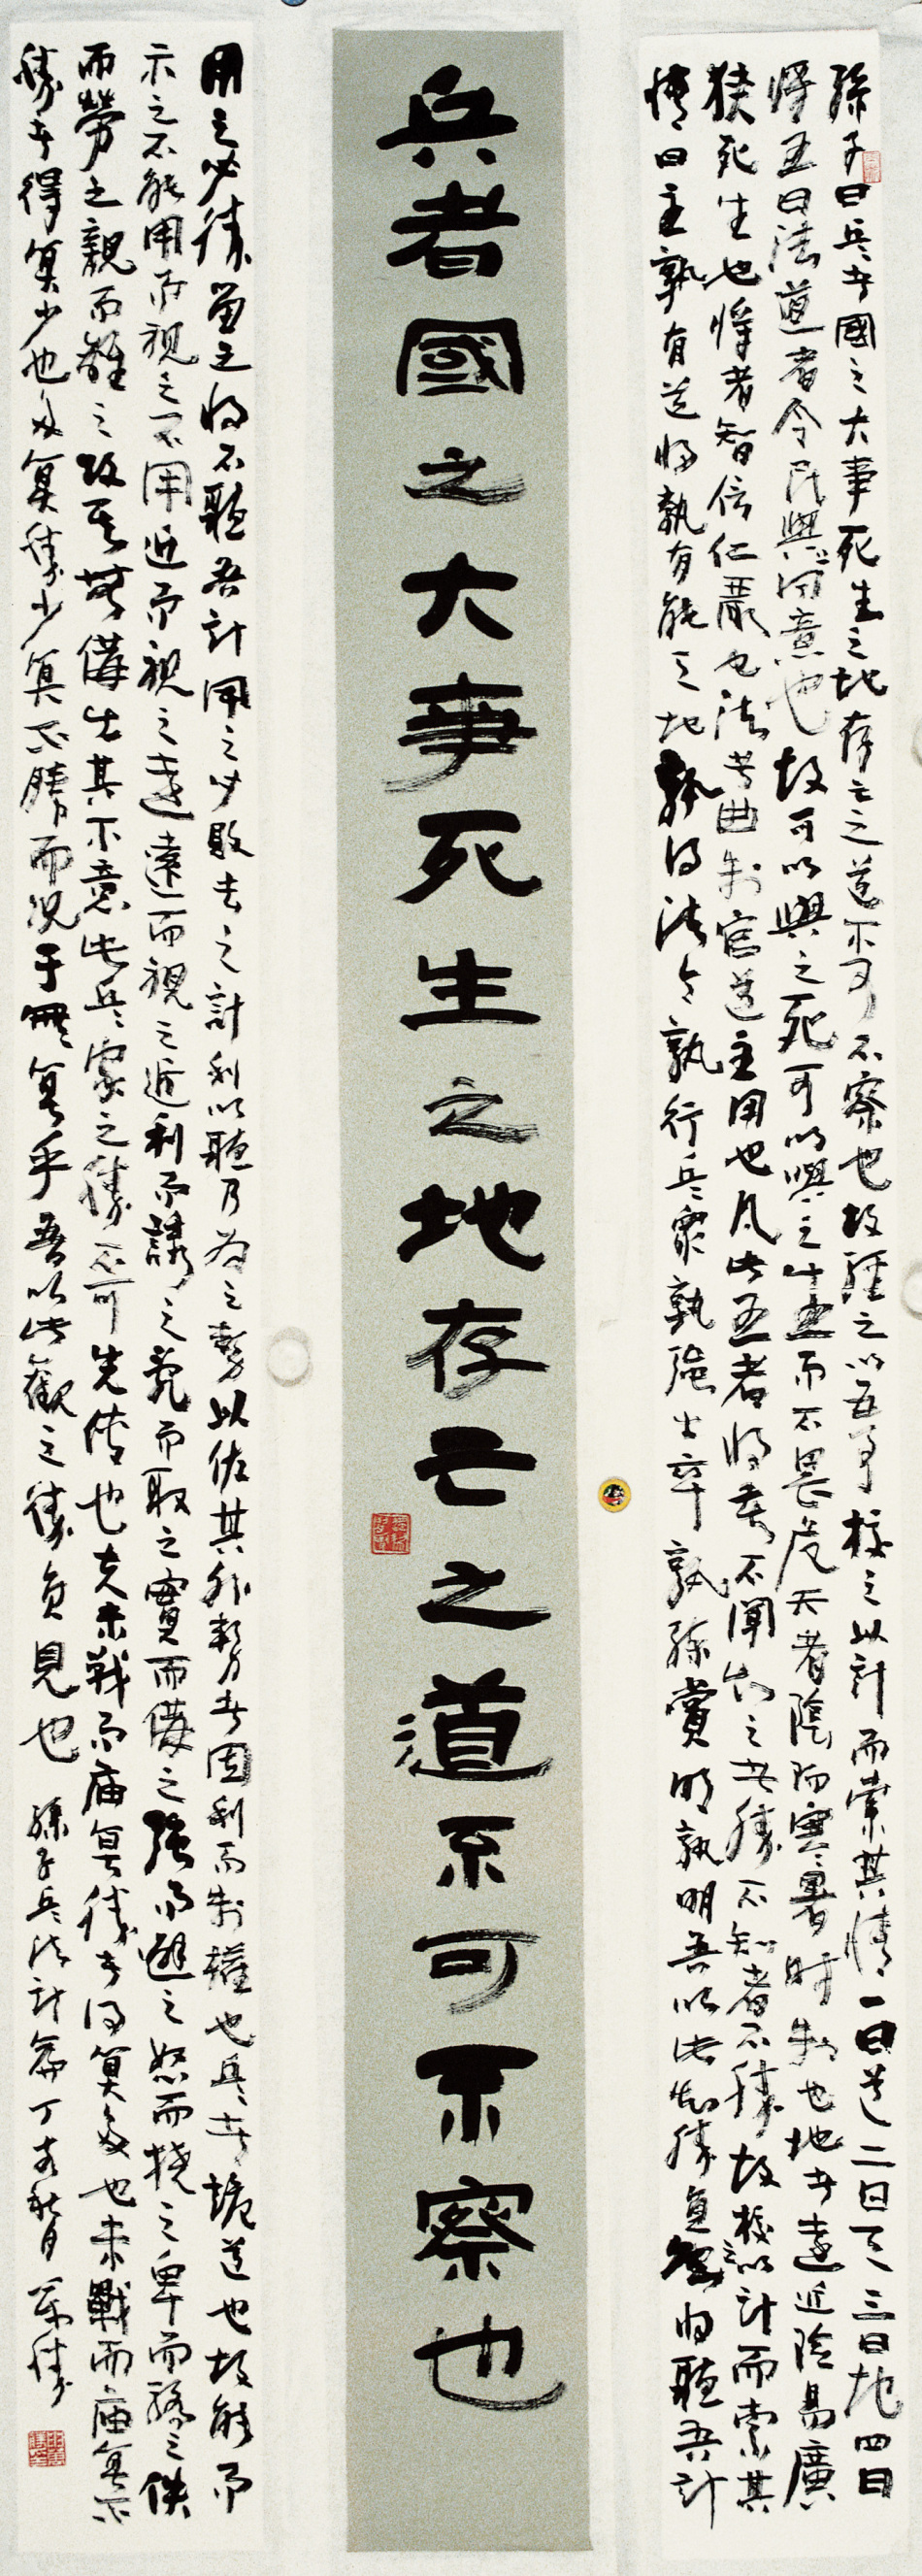 孫子曰兵者國之大事死生之地存亡之道不可不察也故經之以五事校之以計而索其情一曰道二曰天三曰地四曰
將五曰法道者令民與上同意也故可以與之死可以與之生而不畏危天者陰陽寒暑時制也地者遠近險易廣
狹死生也將者智信仁嚴也法者曲制官道主用也凡此五者將莫不聞知之者勝不知者不勝故校之以計而索其
情曰主孰有道將孰有能天地孰得法令孰行兵眾孰強士卒孰練賞明孰明吾以此知勝負矣將聽吾計
兵者國之大事死生之地存亡之道不可不察也
用之必勝留之將不聽吾計用之必敗去之計利以聽乃為之勢以佐其外勢者因利而制權也兵者詭道也故能而
示之不能用而視之不用近而視之遠遠而視之近利而誘之亂而取之實而備之強而避之怒而撓之卑而驕之佚
而勞之親而離之攻其無備出其不意此兵家之勝不可先傳也夫未戰而廟算勝者得算多也未戰而廟算不
勝者得算少也多算勝少算不勝而況于無算乎吾以此觀之勝負見也 孫子兵法計篇丁亥秋月